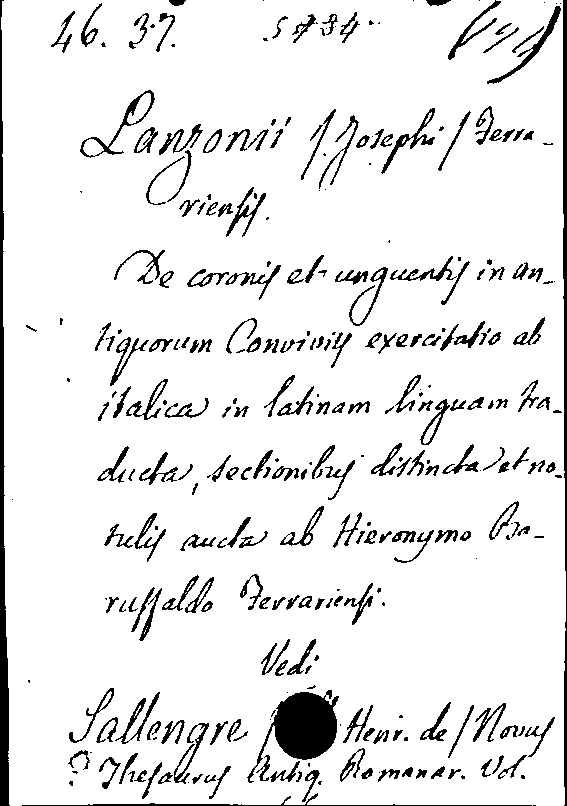 46. 37. 5484.
Lanzonii /Josephi/ Ferra-
riensis.
De coronis et unguentis in an-
tiquorum Conviviis exercitatio ab
italica in latinam linguam tra-
ducta, sectionibus distincta et no-
tulis aucta ab Hieronymo Ba-
ruffaldo Ferrariensi.
Vedi
Sallengre / Henr. de / Novus
Thesaurus Antiq. Romanar. Vol.